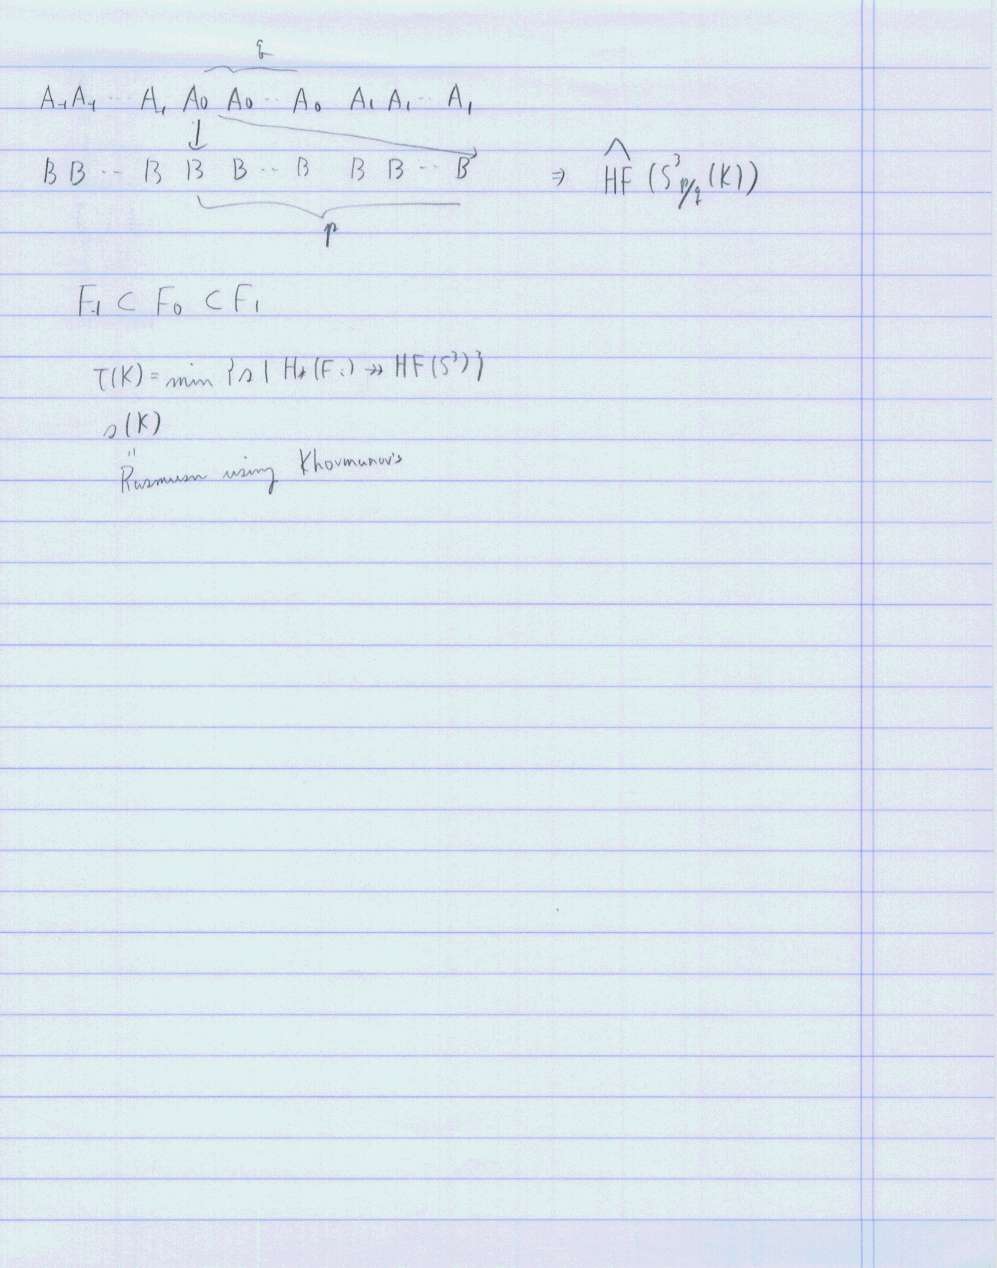 q
A₋₁ A₋₁ ⋯ A₁ A₀ A₀ ⋯ A₀ A₁ A₁ ⋯ A₁
B B ⋯ B B B ⋯ B B B ⋯ B ⇒ \widehat{HF} (S³_{p/q}(K))
p
F₋₁ ⊂ F₀ ⊂ F₁
τ(K) = min {s | H_*(F_i) ↠ HF(S³)}
s(K)
"
Rasmusn using Khovmanov's